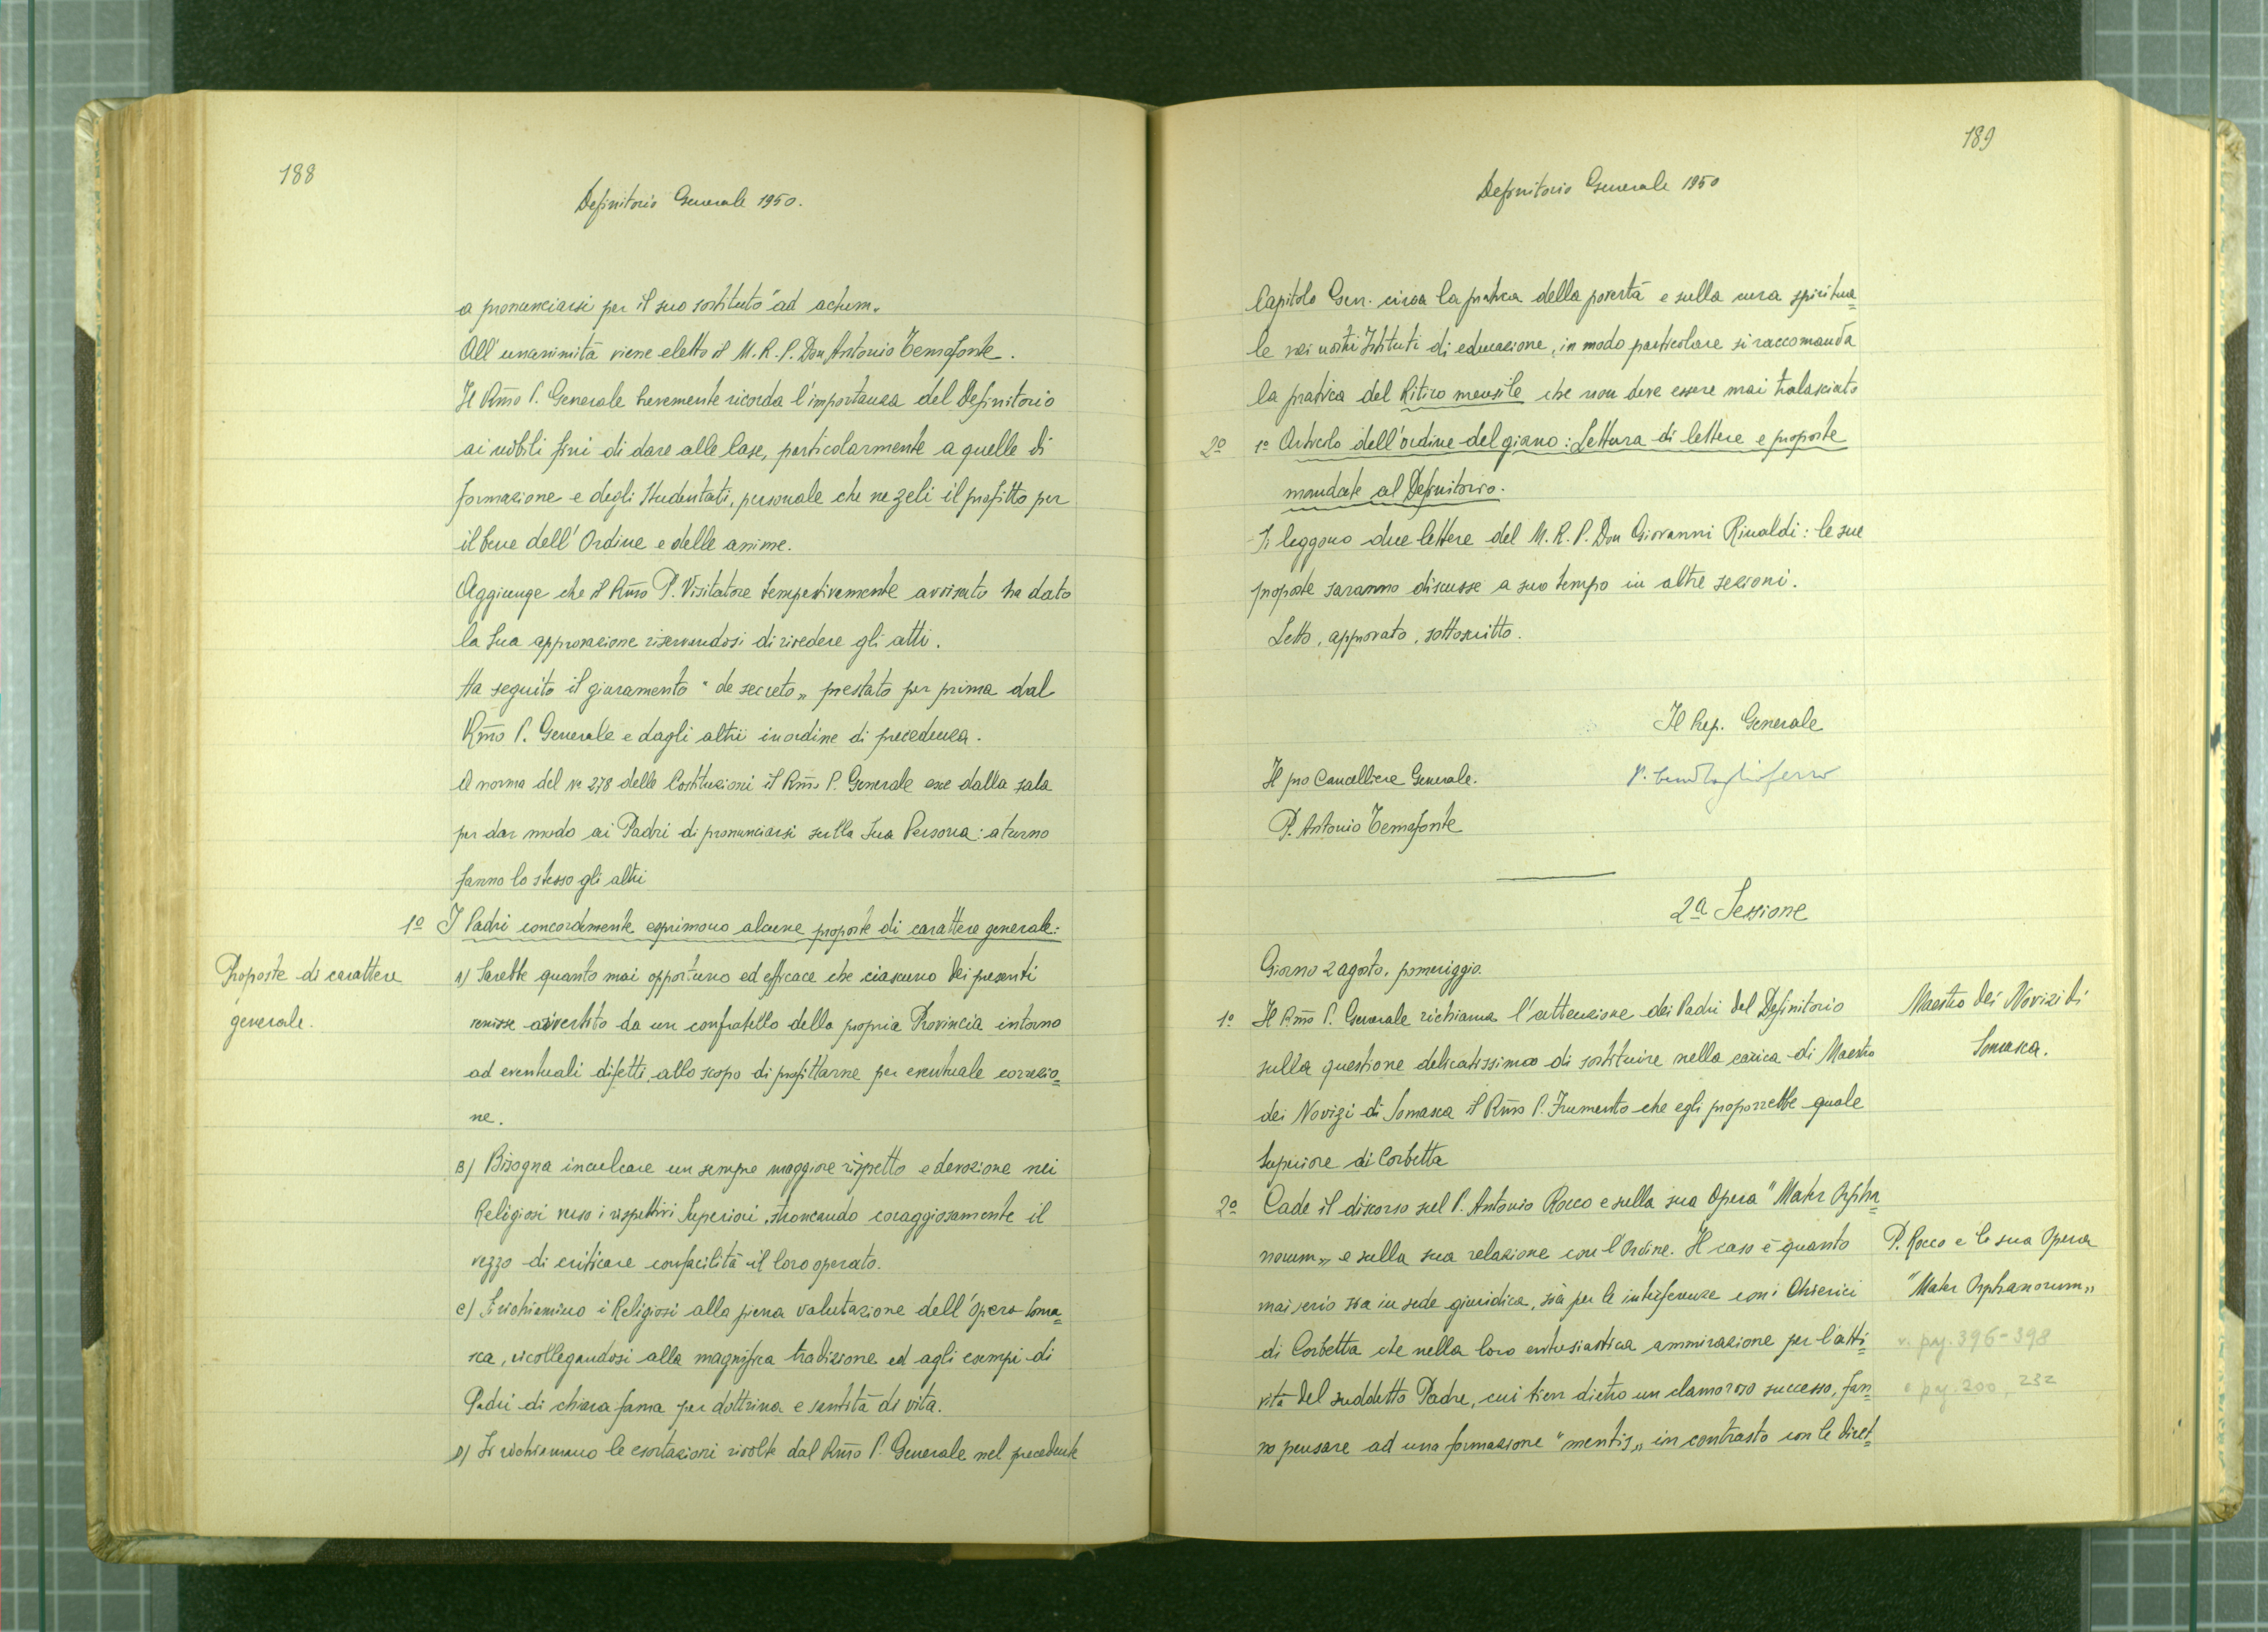 188
Definitorio Generale 1950.
a pronunciarsi per il suo sostituto "ad actum„
All'unanimità viene eletto il M. R. P. Don Antonio Temofonte.
Il Rm̃o P. Generale brevemente ricorda l'importanza del Definitorio
ai nobili fini di dare alle Case, particolarmente a quelle di
formazione e degli Studentati, personale che ne zeli il profitto per
il bene dell'Ordine e delle anime.
Aggiunge che il Rm̃o P. Visitatore tempestivamente avvisato ha dato
la Sua approvazione riservandosi di rivedere gli atti.
Ha seguito il giuramento "de secreto„ prestato per prima dal
Rm̃o P. Generale e dagli altri in ordine di precedenza.
A norma del n. 278 delle Costituzioni il Rm̃o P. Generale esce dalla sala
per dar modo ai Padri di pronunciarsi sulla Sua Persona: a turno
fanno lo stesso gli altri
1º I Padri concordemente esprimono alcune proposte di carattere generale:
Proposte di carattere
generale.
A) Sarebbe quanto mai opportuno ed efficace che ciascuno dei presenti
venisse avvertito da un confratello della propria Provincia intorno
ad eventuali difetti, allo scopo di profittarne per eventuale correzio=
ne.
B) Bisogna inculcare un sempre maggiore rispetto e devozione nei
Religiosi verso i rispettivi Superiori, stroncando coraggiosamente il
vezzo di criticare con facilità il loro operato.
C) Si richiamino i Religiosi alla piena valutazione dell'Opera Soma=
sca, ricollegandosi alla magnifica tradizione ed agli esempi di
Padri di chiara fama per dottrina e santità di vita.
D) Si richiamano le esortazioni rivolte dal Rm̃o P. Generale nel precedente
189
Definitorio Generale 1950
Capitolo Gen. circa la pratica della povertà e sulla cura spiritua=
le nei nostri Istituti di educazione, in modo particolare si raccomanda
la pratica del Ritiro mensile che non deve essere mai tralasciato
2º 1º Articolo dell'ordine del giorno: Lettura di lettere e proposte
mandate al Definitorio.
Si leggono due lettere del M. R. P. Don Giovanni Rinaldi: le sue
proposte saranno discusse a suo tempo in altre sezioni.
Letto, approvato, sottoscritto.
Il Rep. Generale
Il pro Cancelliere Generale.
P. Antonio Temofonte
2ª Sessione
Giorno 2 agosto, pomeriggio.
1º Il Rm̃o P. Generale richiama l'attenzione dei Padri del Definitorio
Maestro dei Novizi di
Somasca.
sulla questione delicatissima di sostituire nella carica di Maestro
dei Novizi di Somasca il Rm̃o P. Frumento che egli proporrebbe quale
Superiore di Corbetta
2º Cade il discorso sul P. Antonio Rocco e sulla sua Opera "Mater Orpha=
norum„ e sulla sua relazione con l'Ordine. Il caso è quanto
P. Rocco e la sua Opera
"Mater Orphanorum„
mai serio sia in sede giuridica, sia per le interferenze con i Chierici
di Corbetta che nella loro entusiastica ammirazione per l'atti=
v. pag. 396-398
vità del suddetto Padre, cui tien dietro un clamoroso successo, fan=
e pag. 200, 232
no pensare ad una formazione "mentis„ in contrasto con le diret=